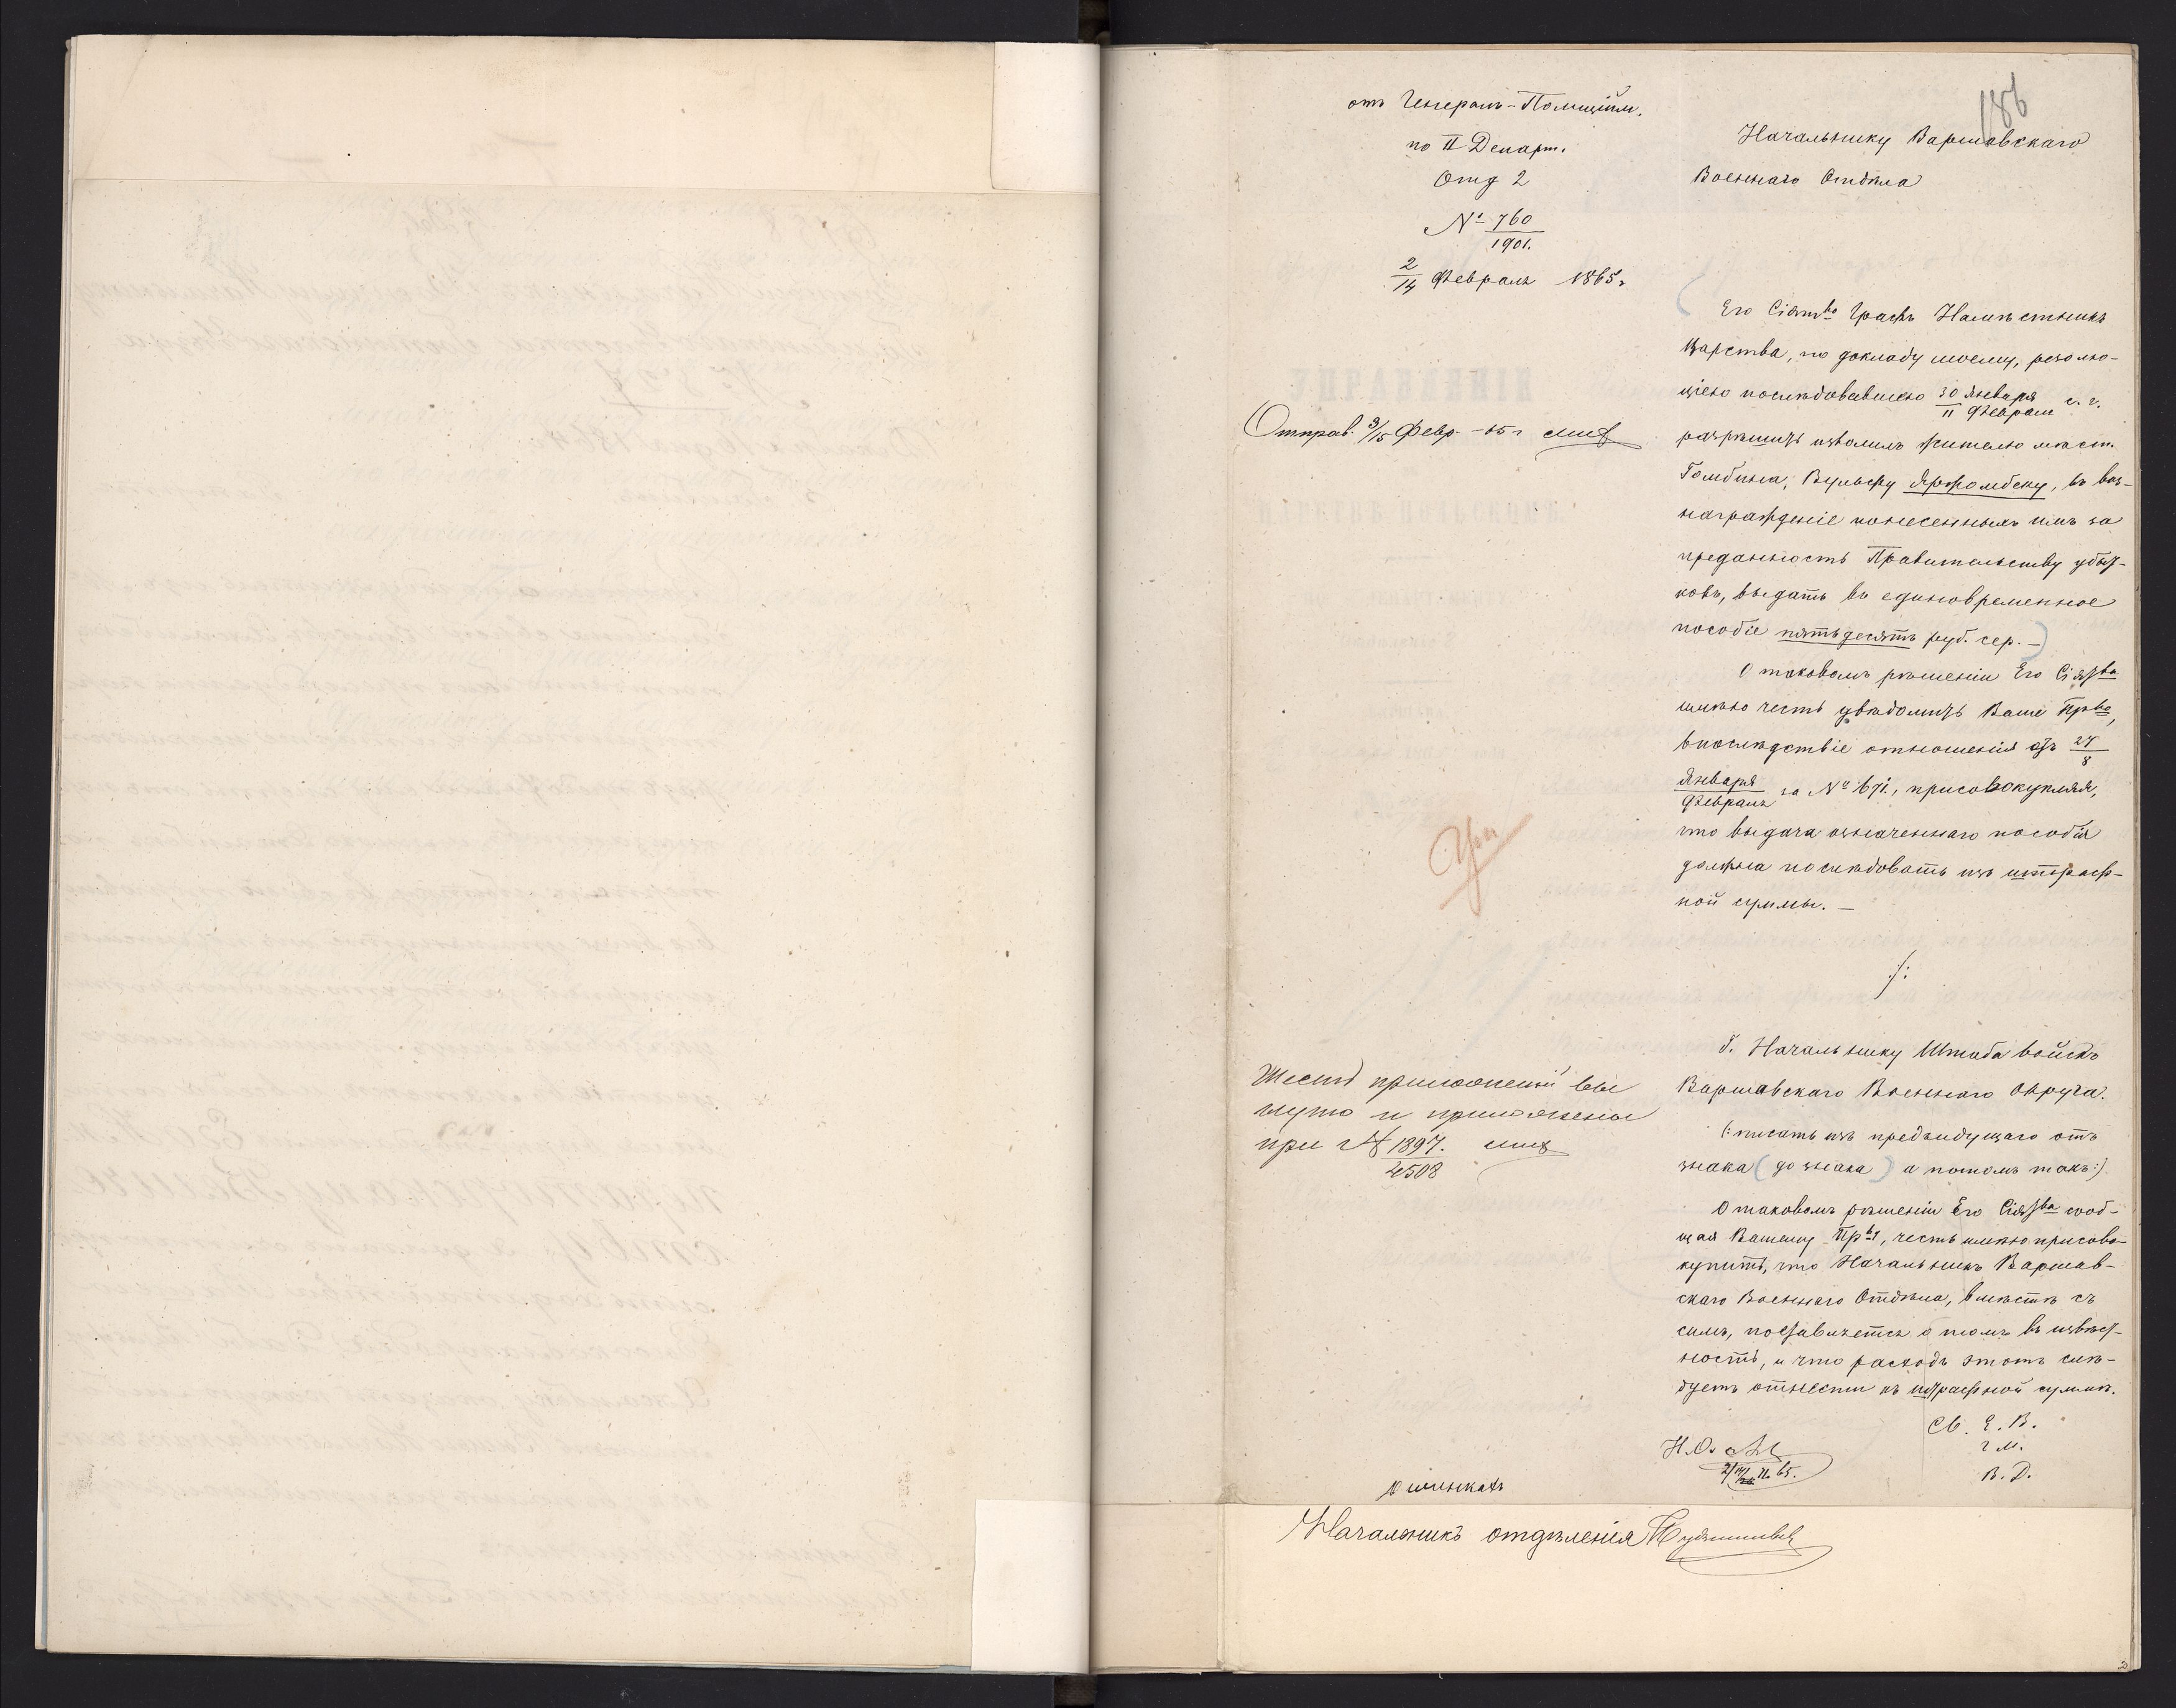 186
отъ Генералъ-Полиціим.
по II Департ.
Отд 2
№ 760
1901.
2/14 Февраля 1865 г.
Начальнику Варшавскаго
Военнаго Отдѣла
Его Сіят-во Графъ Намѣстникъ
Царства, по докладу моему, резолю-
ціею послѣдовавшею 30 Января / 11 Февраля с. г.
разрѣшить изволилъ жителю мѣст.
Гомбина, Вульфу Яржомбеку, въ воз-
награжденіе понесенныхъ имъ за
преданность Правительству убыт-
ковъ, выдать въ единовременное
пособіе пятьдесятъ руб. сер. —
О таковомъ рѣшеніи Его Сіят-ва
имѣю честь увѣдомить Ваше Пр-во,
впослѣдствіе отношенія отъ 27/8
Января/Февраля за № 671, присовокупляя,
что выдача означеннаго пособія
должна послѣдовать изъ штраф-
ной суммы. —
Отправ. 3/15 Февр. - 65 г
б. Начальнику Штаба войскъ
Варшавскаго Военнаго Округа.
(: писать изъ предъидущаго отъ
знака ( до знака ) а потомъ такъ :)
О таковомъ рѣшеніи Его Сіят-ва сооб-
щая Вашему Пр-ву, честь имѣю присово-
купить, что Начальникъ Варшав-
скаго Военнаго Отдѣла, вмѣстѣ съ
симъ, поставляется о томъ въ извѣст-
ность, и что расходъ этотъ слѣ-
дуетъ отнести къ штрафной суммѣ.
Св. Е. В.
Г М.
В. Д.
Шесть приложеній вы
нуто и приложены
при № 1897.
4508
Н. О.
II. 65.
Начальникъ отдѣленія